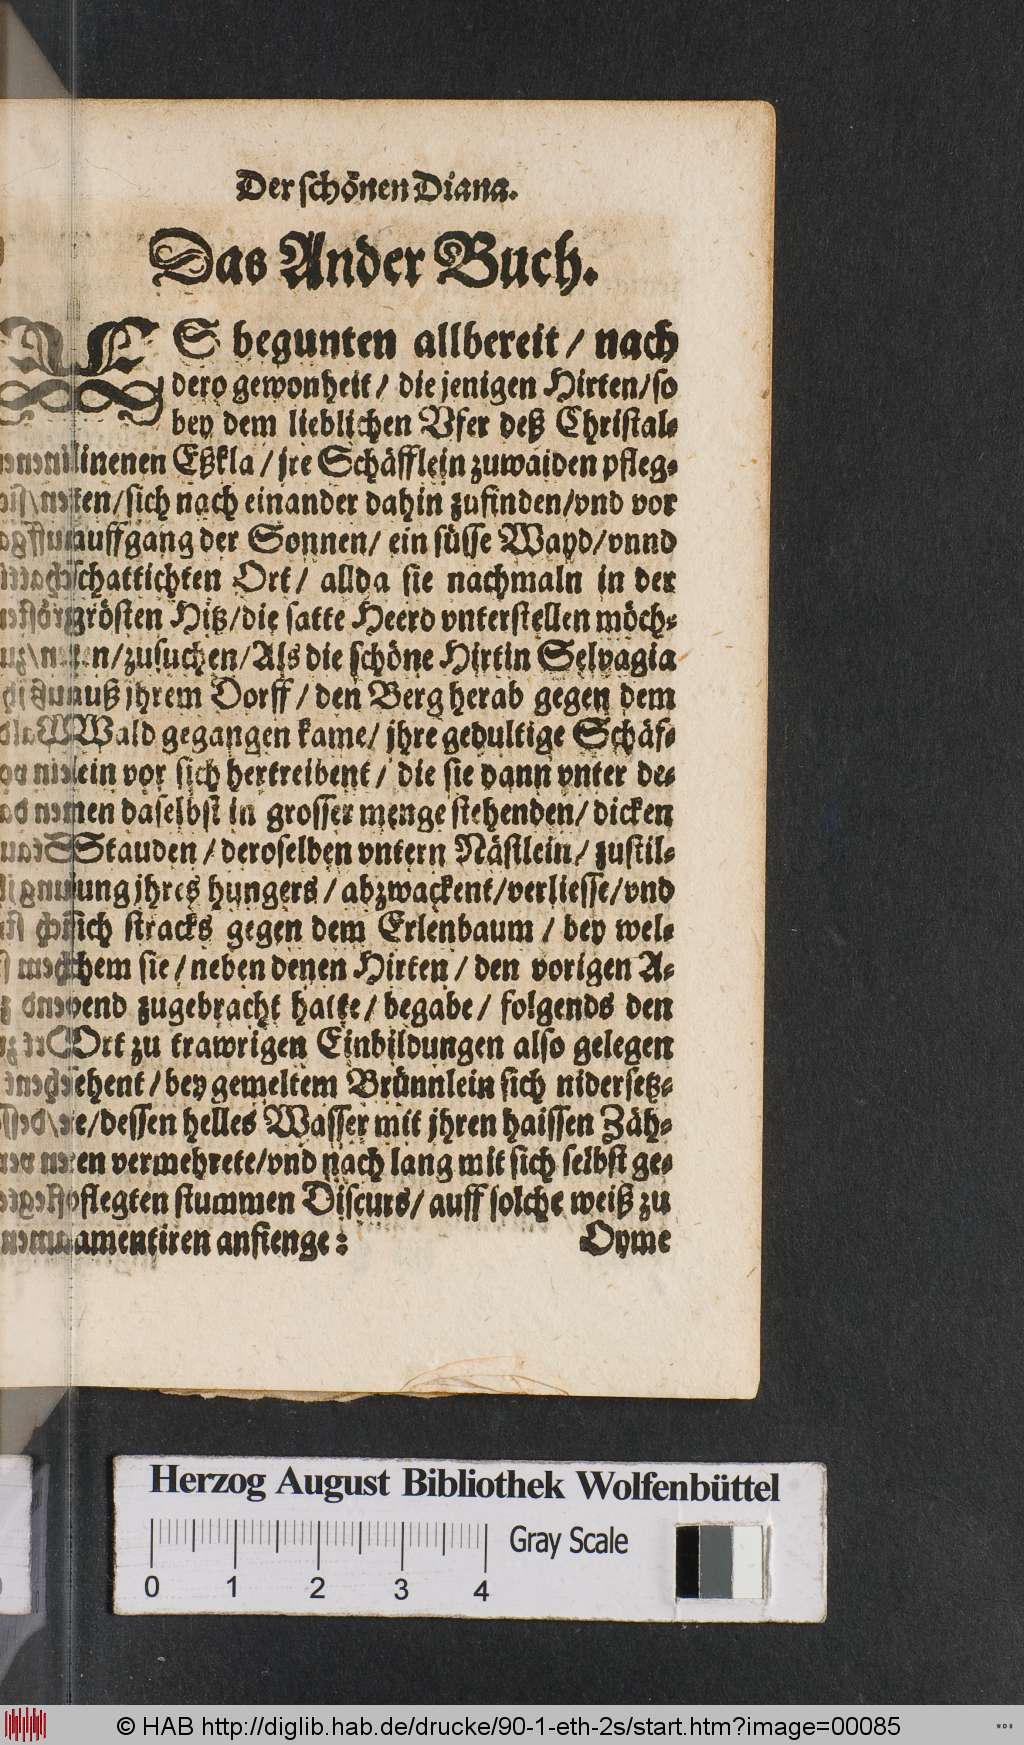 Der schönen Diana.
Das Ander Buch.
ALS begunten allbereit / nach
dero gewonheit / die jenigen Hirten / so
bey dem lieblichen Vfer deß Christal-
linenen Eßkla / jre Schäfflein zuwaiden pfleg-
ten / sich nach einander dahin zufinden / vnd vor
auffgang der Sonnen / ein süsse Wayd / vnnd
schattichten Ort / allda sie nachmaln in der
grösten Hitz / die satte Heerd vnterstellen möch-
ten / zusuchen / Als die schöne Hirtin Selvagia
auß jhrem Dorff / den Berg herab gegen dem
Wald gegangen kame / jhre gedultige Schäf-
lein vor sich hertreibent / die sie dann vnter de-
nen daselbst in grosser menge stehenden / dicken
Stauden / deroselben vntern Nästlein / zustil-
lung jhres hungers / abzwackent / verliesse / vnd
sich stracks gegen dem Erlenbaum / bey wel-
chem sie / neben denen Hirten / den vorigen A-
bend zugebracht hatte / begabe / folgends den
Ort zu trawrigen Einbildungen also gelegen
sehent / bey gemeltem Brünnlein sich nidersetz-
te / dessen helles Wasser mit jhren haissen Zäh-
ren vermehrete / vnd nach lang mit sich selbst ge-
pflegten stummen Discurs / auff solche weiß zu
lamentiren anfienge :
Oyme
Herzog August Bibliothek Wolfenbüttel
Gray Scale
0 1 2 3 4
© HAB http://diglib.hab.de/drucke/90-1-eth-2s/start.htm?image=00085